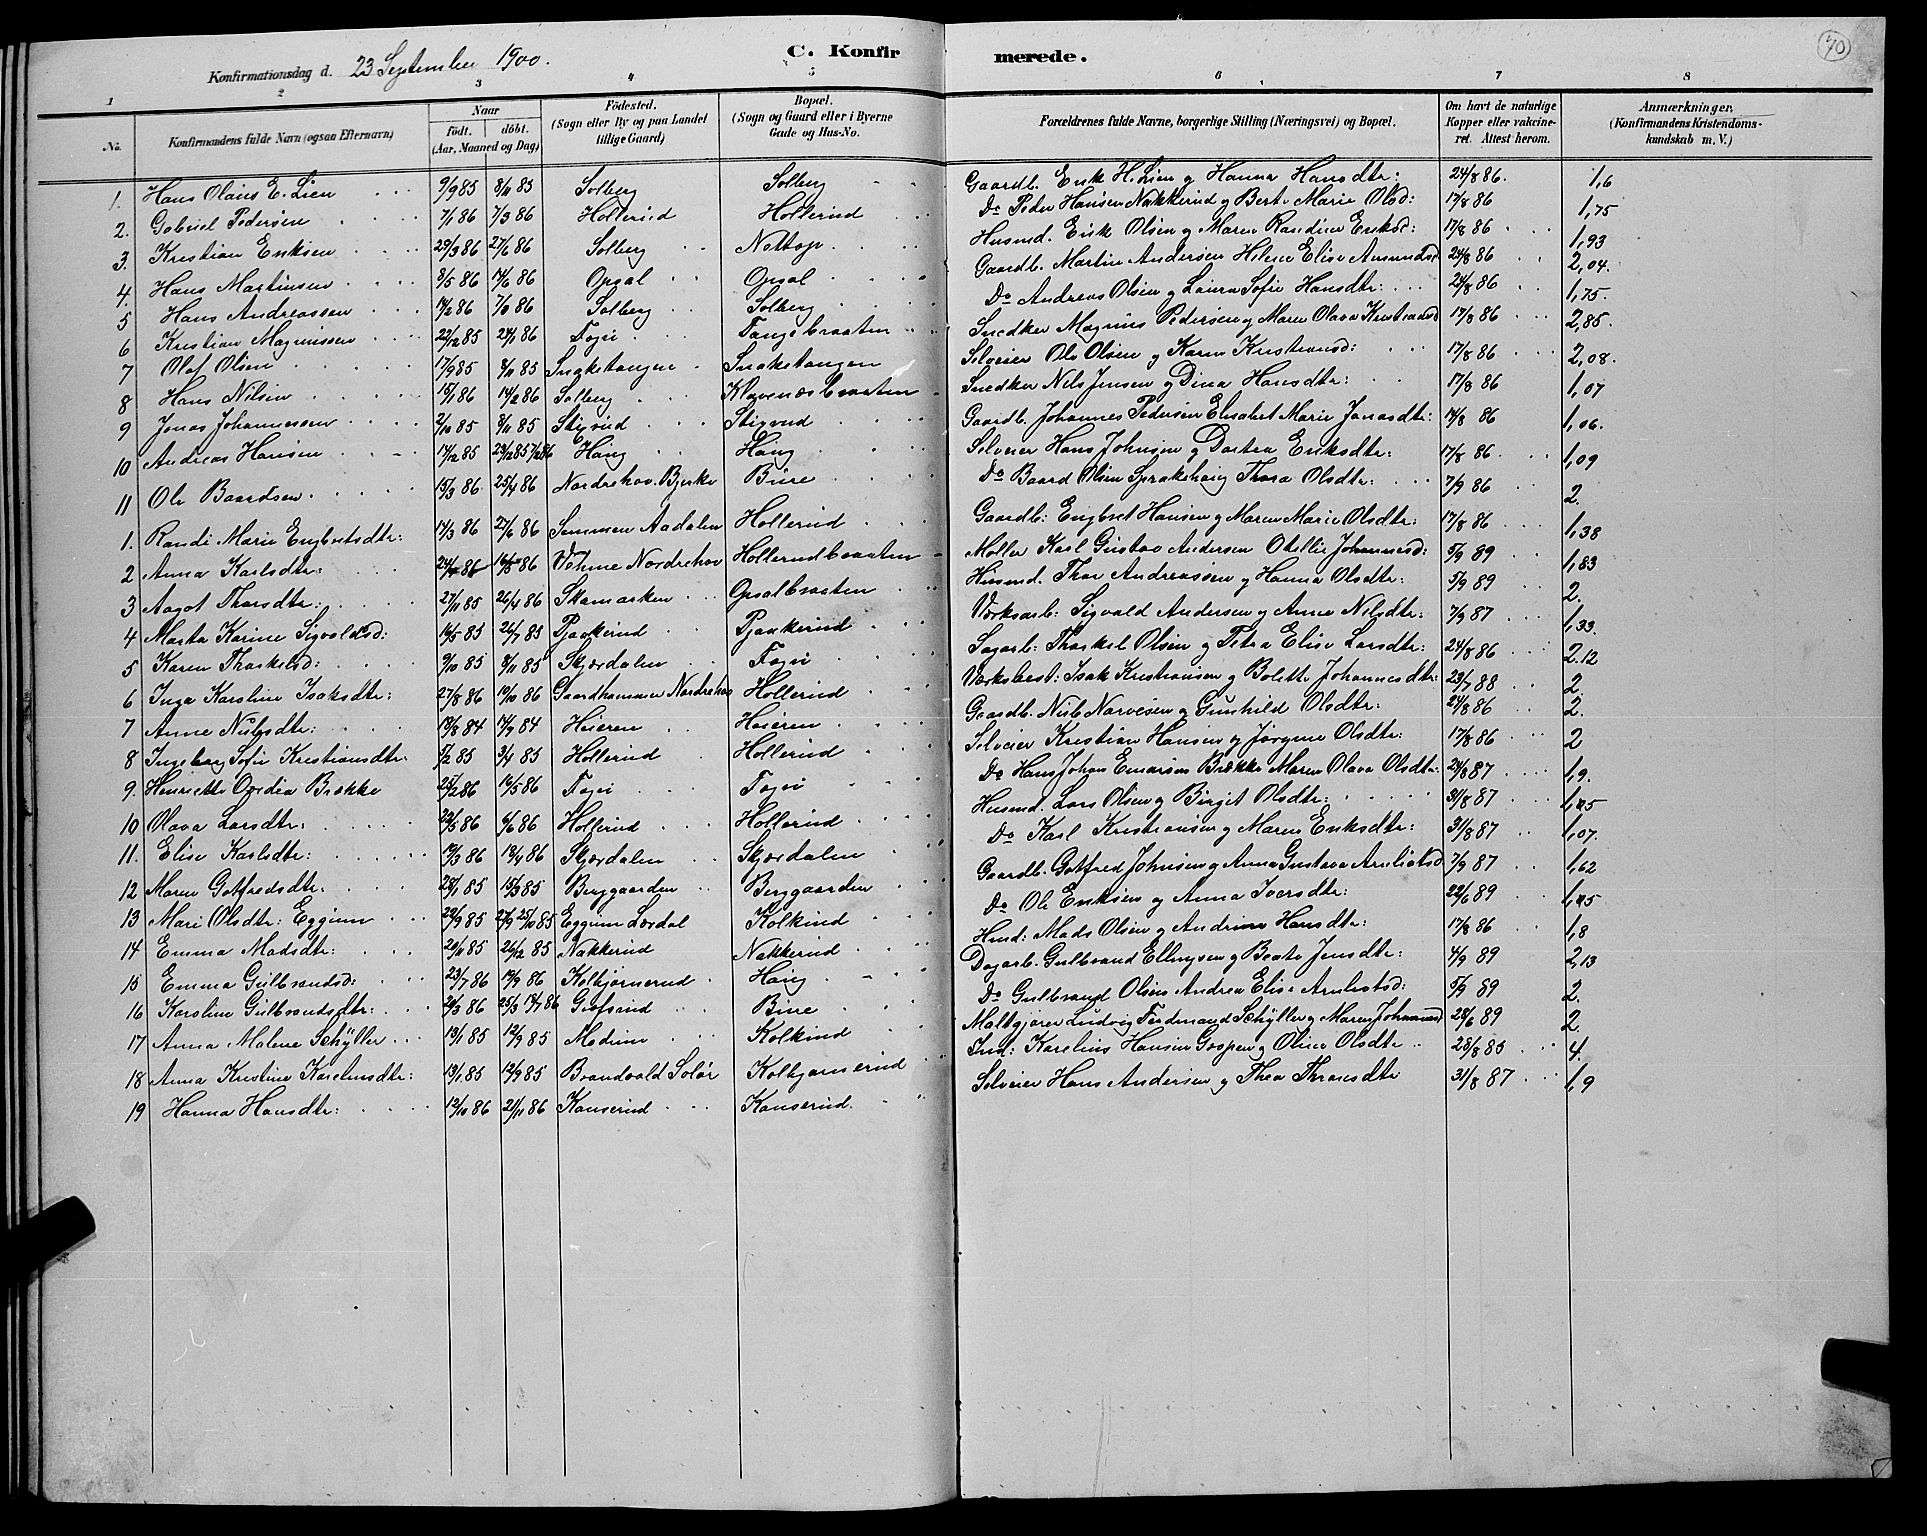 70
C. Konfirmerede.
Konfirmationsdag d. 23 September 1900.
1 2 3 4 5 6 7 8
No. Konfirmandens fulde Navn (ogsaa Efternavn) Naar födt. döbt. (Aar, Maaned og Dag) Födested. (Sogn eller By og paa Landet tillige Gaard) Bopæl. (Sogn og Gaard eller i Byerne Gade og Hus-No. Forældrenes fulde Navne, borgerlige Stilling (Næringsvei) og Bopæl. Om havt de naturlige Kopper eller vaccineret. Attest herom. Anmærkninger. (Konfirmandens Kristendomskundskab m. V.)
1. Hans Olaus E. Lien 9/9 85 8/11 85 Solberg Solberg Gaardb. Erik H. Lien og Hanna Hansdtr: 24/8 86. 1,6
2. Gabriel Pedersen 7/1 86 7/3 86 Hollerud Hollerud Do Peder Hansen Nakkerud og Berte Marie Olsd: 17/8 86 1,75
3. Kristian Eriksen 29/3 86 27/6 86 Solberg Nattop Husmd. Erik Olsen og Maren Randine Eriksd: 17/8 86 1,93
4. Hans Martinsen 8/5 86 14/6 86 Opsal Opsal Gaardb. Martin Andersen Helene Elise Amundsd 24/8 86 2,04.
5 Hans Andreassen 14/2 86 Solberg Solberg Do Andreas Olsen og Laura Sofie Hansdtr: 24/8 86 1,75.
6 Kristian Magnussen 22/12 85 24/1 86 Togei Tangebraaten Snedker Magnus Pedersen og Maren Olava Kristiansd 17/8 86 2,85.
7 Olaf Olsen 17/9 85 8/11 85 Snaketangen Snaketangen Selveier Ole Olsen og Karen Kristiansd: 17/8 86 2,08.
8 Hans Nilsen 15/1 86 14/2 86 Solberg Klavenæsbraaten Snedker Nils Jensen og Dina Hansdtr: 17/8 86 1,07
9 Jonas Johannessen 2/10 85 8/11 85 Stigrud Stigrud Gaardb. Johannes Pedersen Elisabet Marie Jonasdtr: 17/8 86 1,06.
10 Andreas Hansen 17/12 85 Haug Haug Selveier Hans Johnsen og Dortea Eriksdtr: 17/8 86. 1,09
11 Ole Baardsen 15/3 86 25/4 86 Nordrehov. Bjerke Bure Do Baard Olsen Sprakehaug Thora Olsdtr: 7/9 86 2.
1. Randi Marie Engbretsdtr: 17/3 86 27/6 86 Semmen Aadalen Hollerud Gaardb: Engbret Hansen og Maren Marie Olsdtr: 17/8 86 1,38
2 Anna Karlsdtr: 86 Vehme Nordrehov Hollerudbraaten Møller Karl Gustav Andersen Otellie Johannesd: 5/9 89 1,83
3 Aagot Thorsdtr: 27/11 85 26/4 86 Skamarken Opsalbraaten Husmd. Thor Andreassen og Hanna Olsdtr: 5/9 89 2.
4 Marta Karine Sigvaldsd: 16/5 85 26/7 85 Pjaakerud Pjaakerud Værksarb: Sigvald Andersen og Anne Nilsdtr: 7/9 87 1,33.
5 Karen Thorkelsd: 9/10 85 8/11 85 Skjærdalen Togei Sagarb: Thorkel Olsen og Petra Elise Larsdtr: 24/8 86 2.12
6 Inga Karoline Isaksdtr: 27/8 86 10/10 86 Gaardhammer Nordrehov Hollerud Værksbest: Isak Kristiansen og Bolette Johannesdtr: 23/7 88 2.
7 Anne Nilsdtr: 84 84 Heieren Heieren Gaardb. Nils Narvesen og Gunhild Olsdtr: 24/8 86 2.
8 Ingeborg Sofie Kristiansdtr: 5/2 85 3/4 85 Hollerud Hollerud Selveier Kristian Hansen og Jørgine Olsdtr: 17/8 86 2
9. Henriette Ovedia Brække 25/2 86 16/5 86 Togei Togei Do Hans Johan Brække Maren Olava Olsdtr: 24/8 87 1,9.
10 Olava Larsdtr: 86 6/6 86 Hollerud Hollerud Husmd. Lars Olsen og Birgit Olsdtr: 31/8 87
11. Elise Karlsdtr: 86 86 Skjærdalen Skjærdalen Do Karl Kristiansen og Maren Eriksdtr: 31/8 87 1,07.
12 Maren Gotfredsdtr: 28/1 85 15/3 85 Berggaarden Berggaarden Gaardb. Gotfred Johnsen og Anna Gustava 7/9 87 1,62
13 Mari Olsdtr: Eggium 85 85 Eggium Lærdal Kolkind Do Ole Eriksen og Anna Iversdtr: 22/6 89
14 Emma Madsdtr: 20/11 85 26/12 85 Nakkerud Nakkerud Husd: Mads Olsen og Andrine Hansdtr: 17/8 86 1,8
15 Emma Gulbrandsd: 23/7 86 19/9 86 Kolbjørnerud Haug Dagarb. Gulbrand Ellingsen og Beate Jensdtr: 4/9 89 2,13
16 Karoline Gulbrandsdtr: 86 86 Bure Do Gulbrand Olsen Andrea Elise 5/9 89 2.
17 Anna Malene Schÿller 13/1 85 12/9 85 Modum Kolkind Maltgjører Ludvig Ferdinand Schÿller og Maren Johannesd 28/6 89 2.
18 Anna Kristine Kareliusdtr: 13/1 85 12/9 85 Brandvold Solør Kolbjørnerud Ind: Karelius Hansen og Oline Olsdtr 28/8 85 4.
19 Hanna Hansdtr: 12/10 86 21/11 86 Kanserud Kanserud. Selveier Hans Andersen og Thea 31/8 87 1,9